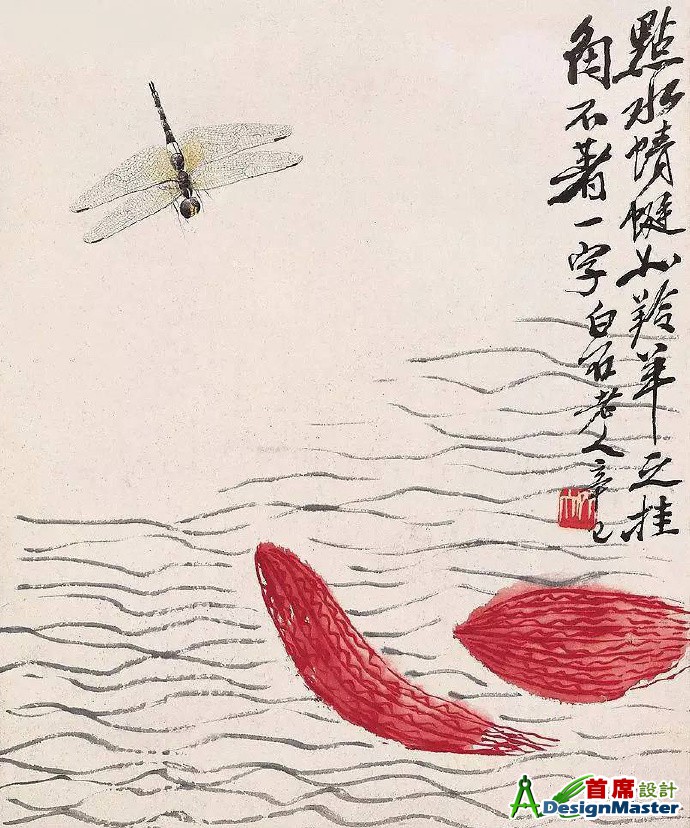 點水蜻蜓如羚羊之挂
角不著一字白石老人辛巳
首席設計
ADesignMaster